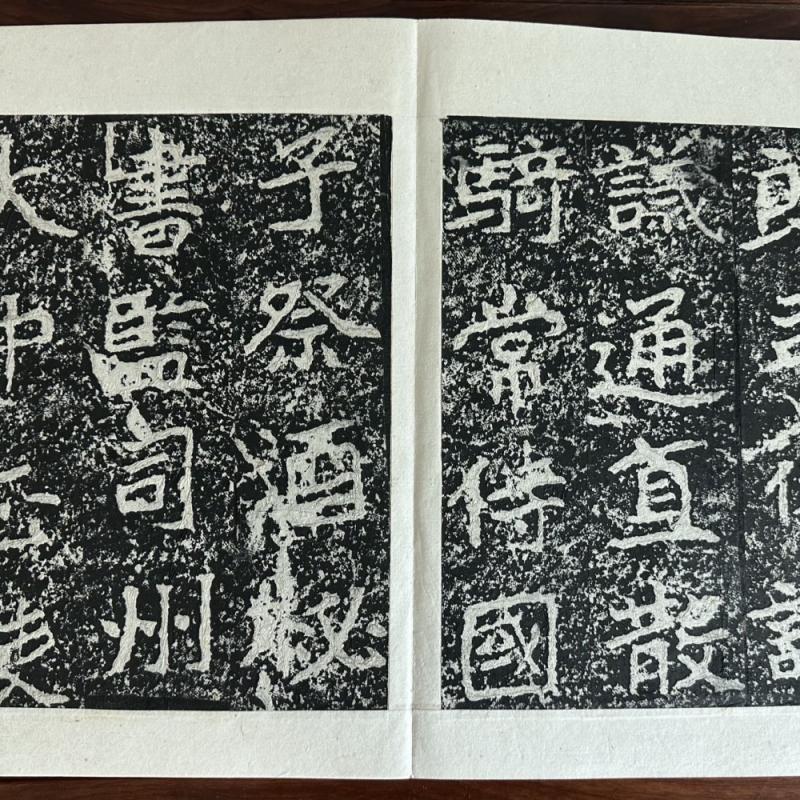 議通直散
騎常侍國
子祭酒秘
書監司州
大中正